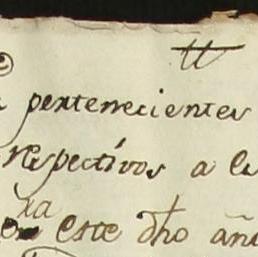 pertenecientes
respectivos a la
en este dho año